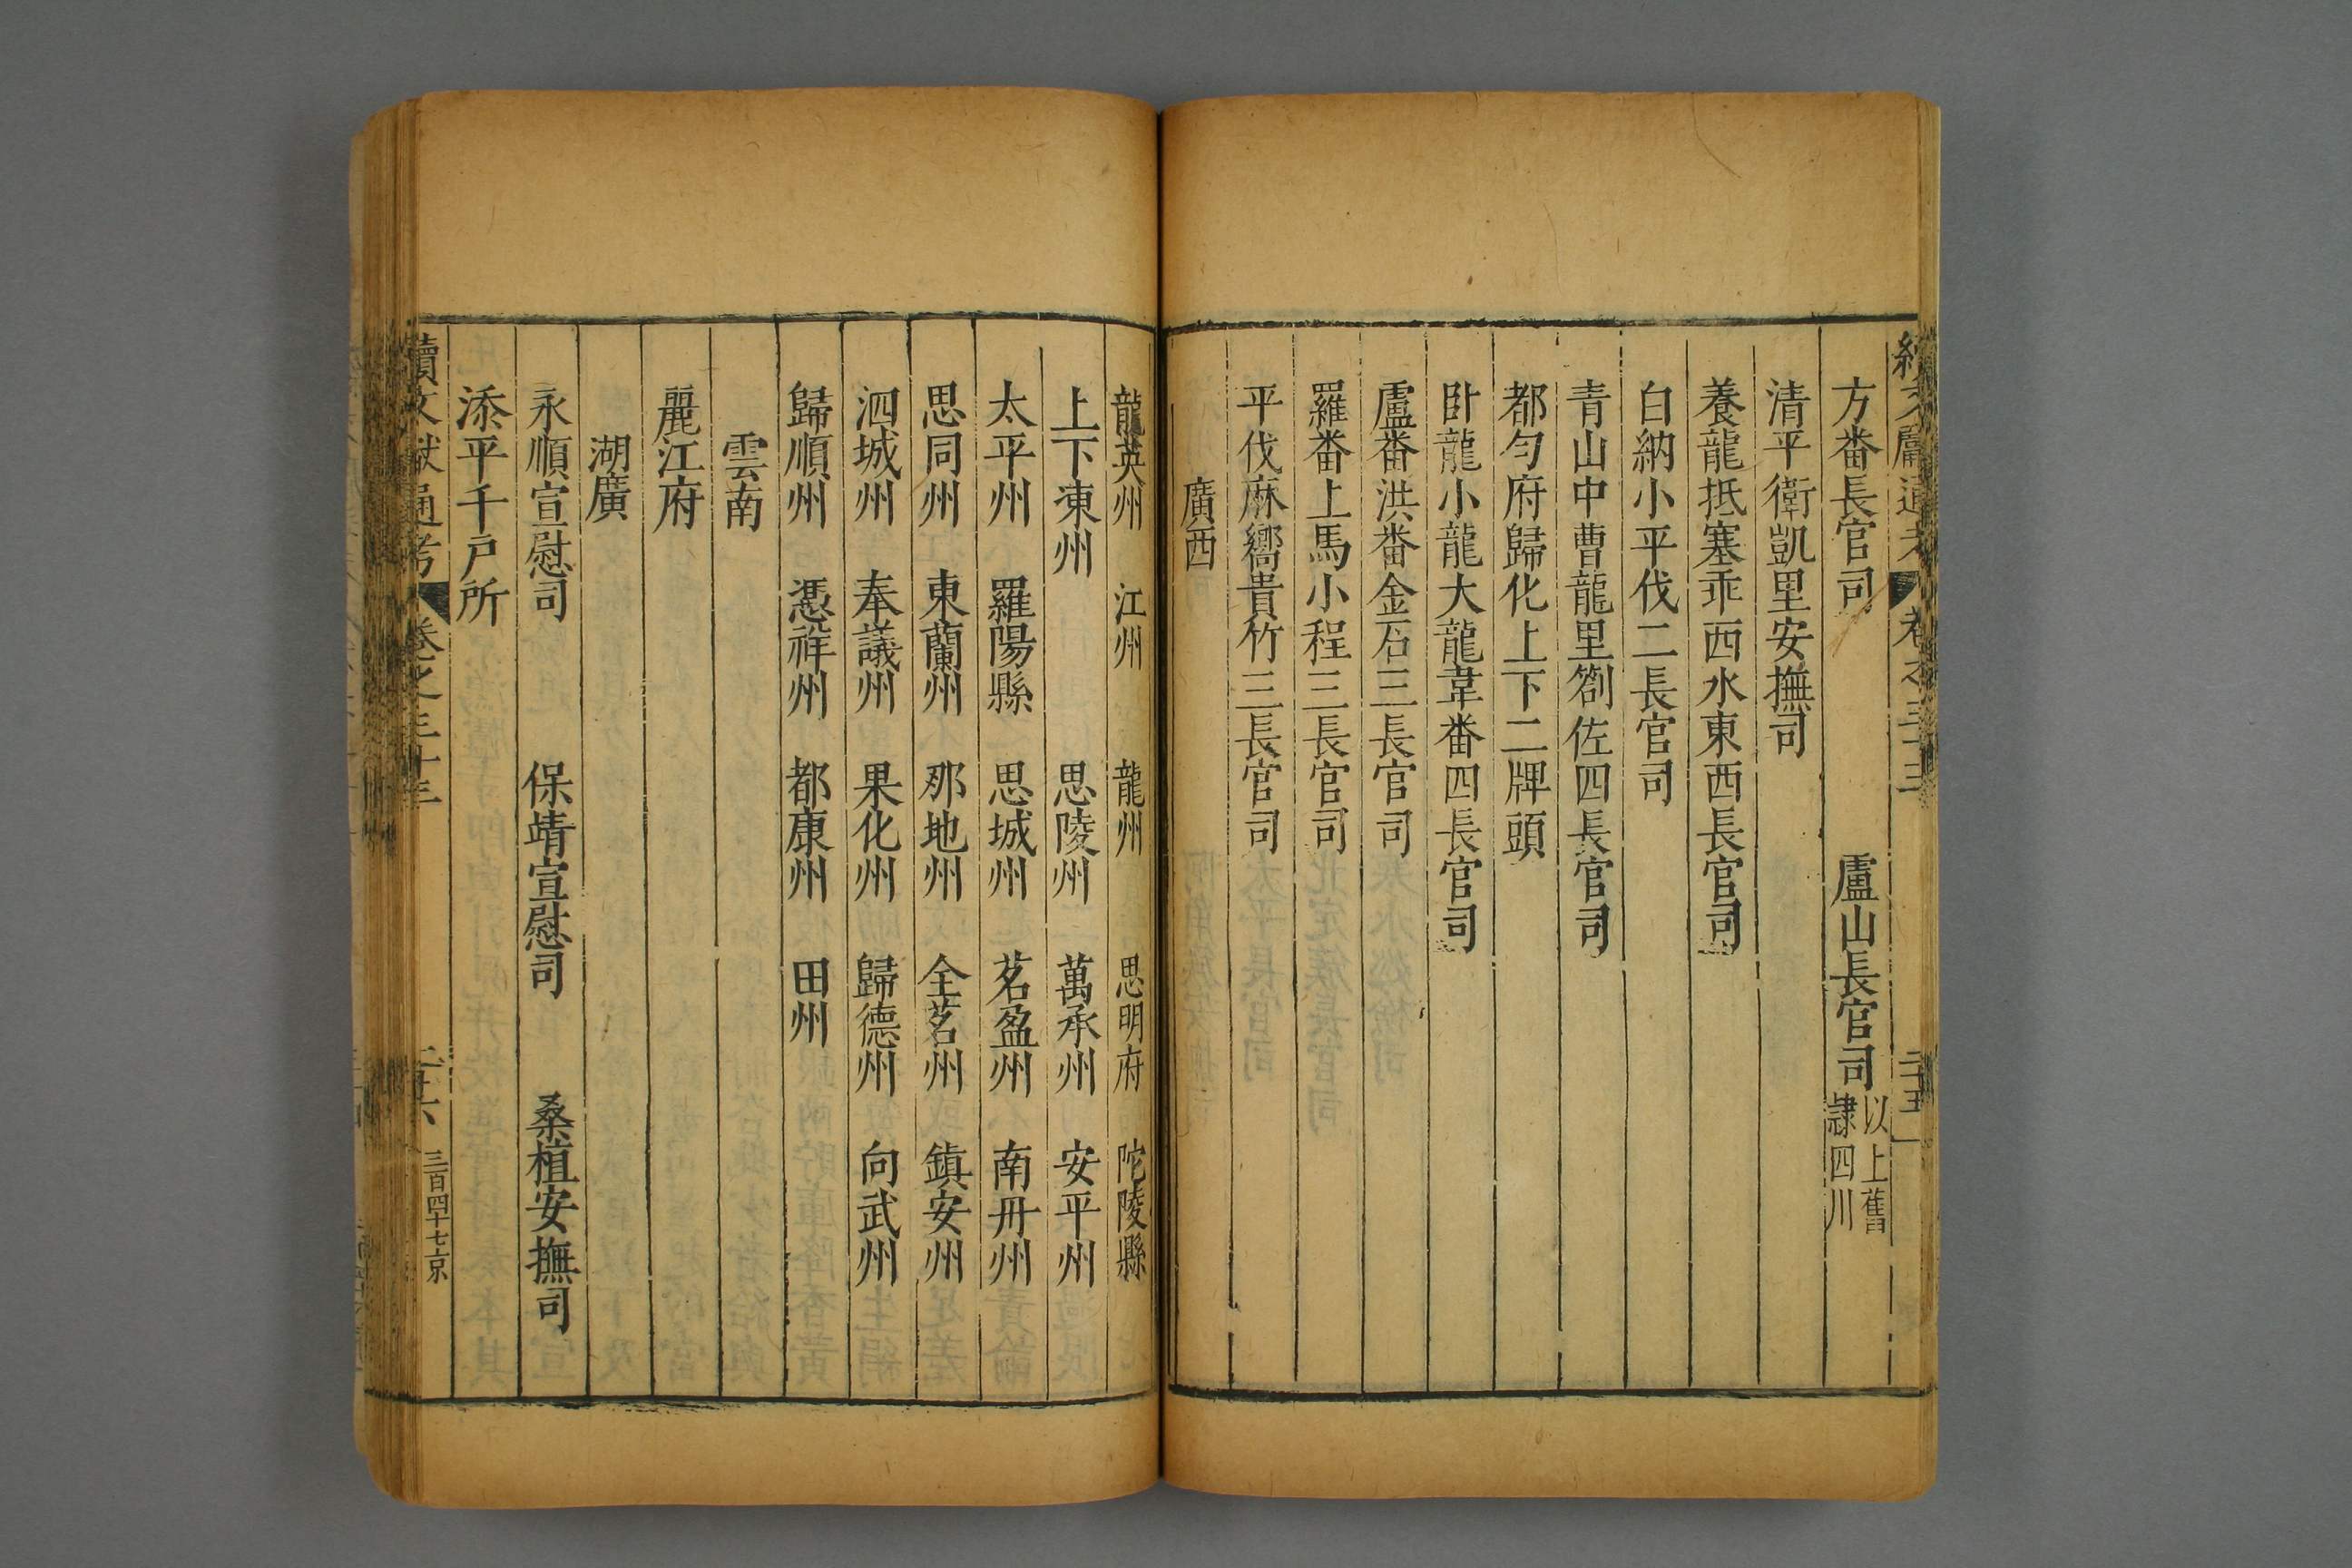 方番長官司 盧山長官司 以上舊隸四川
清平衛凱里安撫司
養龍抵塞乖西水東西長官司
白納小平伐二長官司
青山中曹龍里劄佐四長官司
都勻府歸化上下二牌頭
卧龍小龍大龍韋番四長官司
盧番洪番金石三長官司
羅番上馬小程三長官司
平伐麻嚮貴竹三長官司
廣西
龍英州 江州 龍州 思明府 陀陵縣
上下凍州 思陵州 萬承州 安平州
太平州 羅陽縣 思城州 茗盈州 南丹州
思同州 東蘭州 那地州 全茗州 鎮安州
泗城州 奉議州 果化州 歸德州 向武州
歸順州 憑祥州 都康州 田州
雲南
麗江府
湖廣
永順宣慰司 保靖宣慰司 桑植安撫司
添平千戶所
續文獻通考 卷之三十三 三百四十七 京